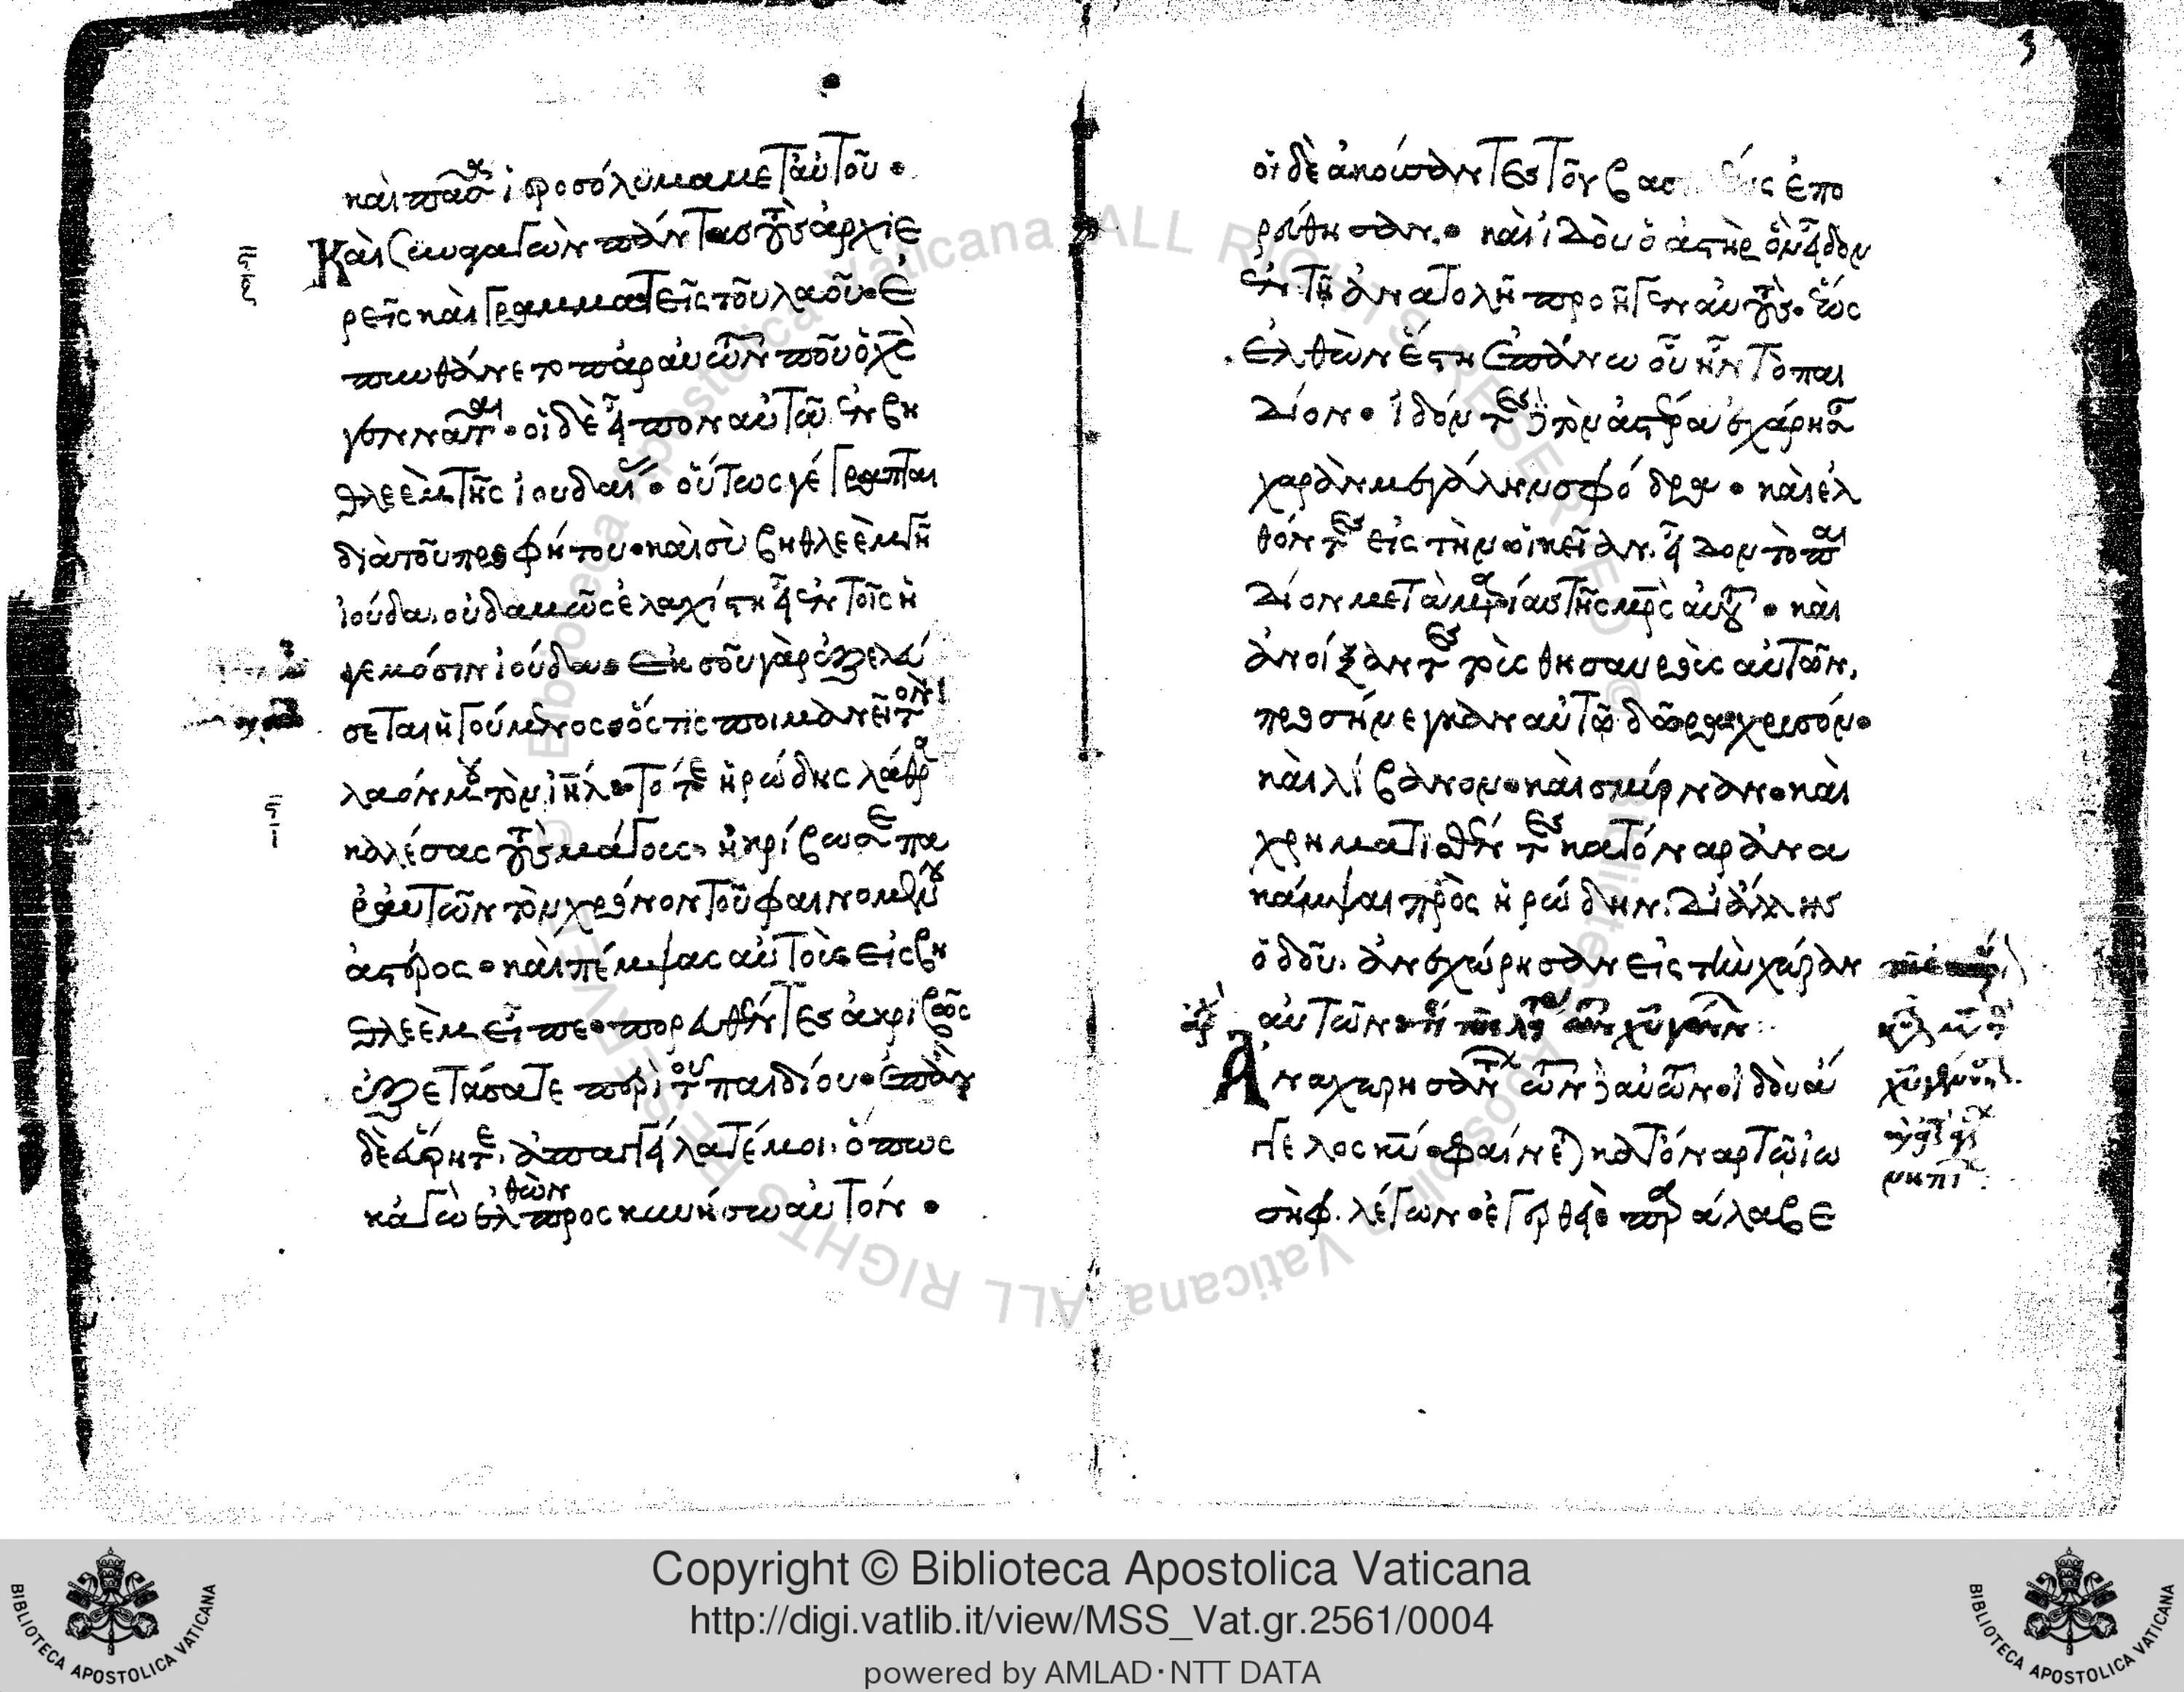 καὶ πᾶσα ἱεροσόλυμα μετ αὐτοῦ·
Καὶ συναγαγὼν πάντας τοὺς ἀρχιε
ρεῖς καὶ γραμματεῖς τοῦ λαοῦ· ἐ
πυνθάνετο παρ αὐτῶν ποῦ ὁ χς
γεννᾶται· οἱ δὲ εἶπον αὐτῶ ἐν βη
θλεὲμ τῆς ἰουδαίας· οὕτως γέγραπται
διὰ τοῦ προφήτου· καὶ σὺ βηθλεὲμ γῆ
ἰούδα, οὐδαμῶς ἐλαχίστη εἶ ἐν τοῖς ἡ
γεμόσιν ἰούδα· ἐκ σοῦ γὰρ ἐξελεύ
σεται ἡγούμενος· ὅστις ποιμανεῖ τὸν
λαόν μου τὸν ιηλ· τότε ἡρώδης λάθρα
καλέσας τοὺς μάγους, ἠκρίβωσε πα
ρ αὐτῶν τὸν χρόνον τοῦ φαινομένου
ἀστέρος· καὶ πέμψας αὐτοὺς εἰς βη
θλεὲμ εἶπε· πορευθέντες ἀκριβῶς
ἐξετάσατε περὶ τοῦ παιδίου· ἐπὰν
δὲ εὕρητε, ἀπαγγείλατέ μοι, ὅπως
κἀγὼ ἐλθὼν προσκυνήσω αὐτόν·
3
οἱ δὲ ἀκούσαντες τοῦ βασιλέως ἐπο
ρεύθησαν· καὶ ἰδοὺ ὁ ἀστὴρ ὃν εἶδον
ἐν τῇ ἀνατολῇ προῆγεν αὐτοὺς· ἕως
ἐλθὼν ἔστη ἐπάνω οὗ ἦν τὸ παι
δίον· ἰδόντες δὲ τὸν ἀστέρα ἐχάρησαν
χαρὰν μεγάλην σφόδρα· καὶ ἐλ
θόντες εἰς τὴν οἰκείαν, εἶδον τὸ παι
δίον μετὰ μαρίας τῆς μρς αὐτοῦ· καὶ
ἀνοίξαντες τοὺς θησαυροὺς αὐτῶν,
προσήνεγκαν αὐτῶ δῶρα χρυσόν·
καὶ λίβανον· καὶ σμύρναν· καὶ
χρηματισθέντες κατ όναρ ἀνα
κάμψαι πρὸς ἡρώδην, δι ἄλλης
ὁδοῦ, ἀνεχώρησαν εἰς τὴν χώραν
αὐτῶν
Ἀναχωρησάντων δὲ αὐτῶν· ἰδοὺ ἄγ
γελος κυ· φαίνεται κατ όναρ τῶ ἰω
σὴφ, λέγων· ἐγερθεὶς παράλαβε
Copyright © Biblioteca Apostolica Vaticana
http://digi.vatlib.it/view/MSS_Vat.gr.2561/0004
powered by AMLAD·NTT DATA
BIBLIOTECA APOSTOLICA VATICANA
BIBLIOTECA APOSTOLICA VATICANA